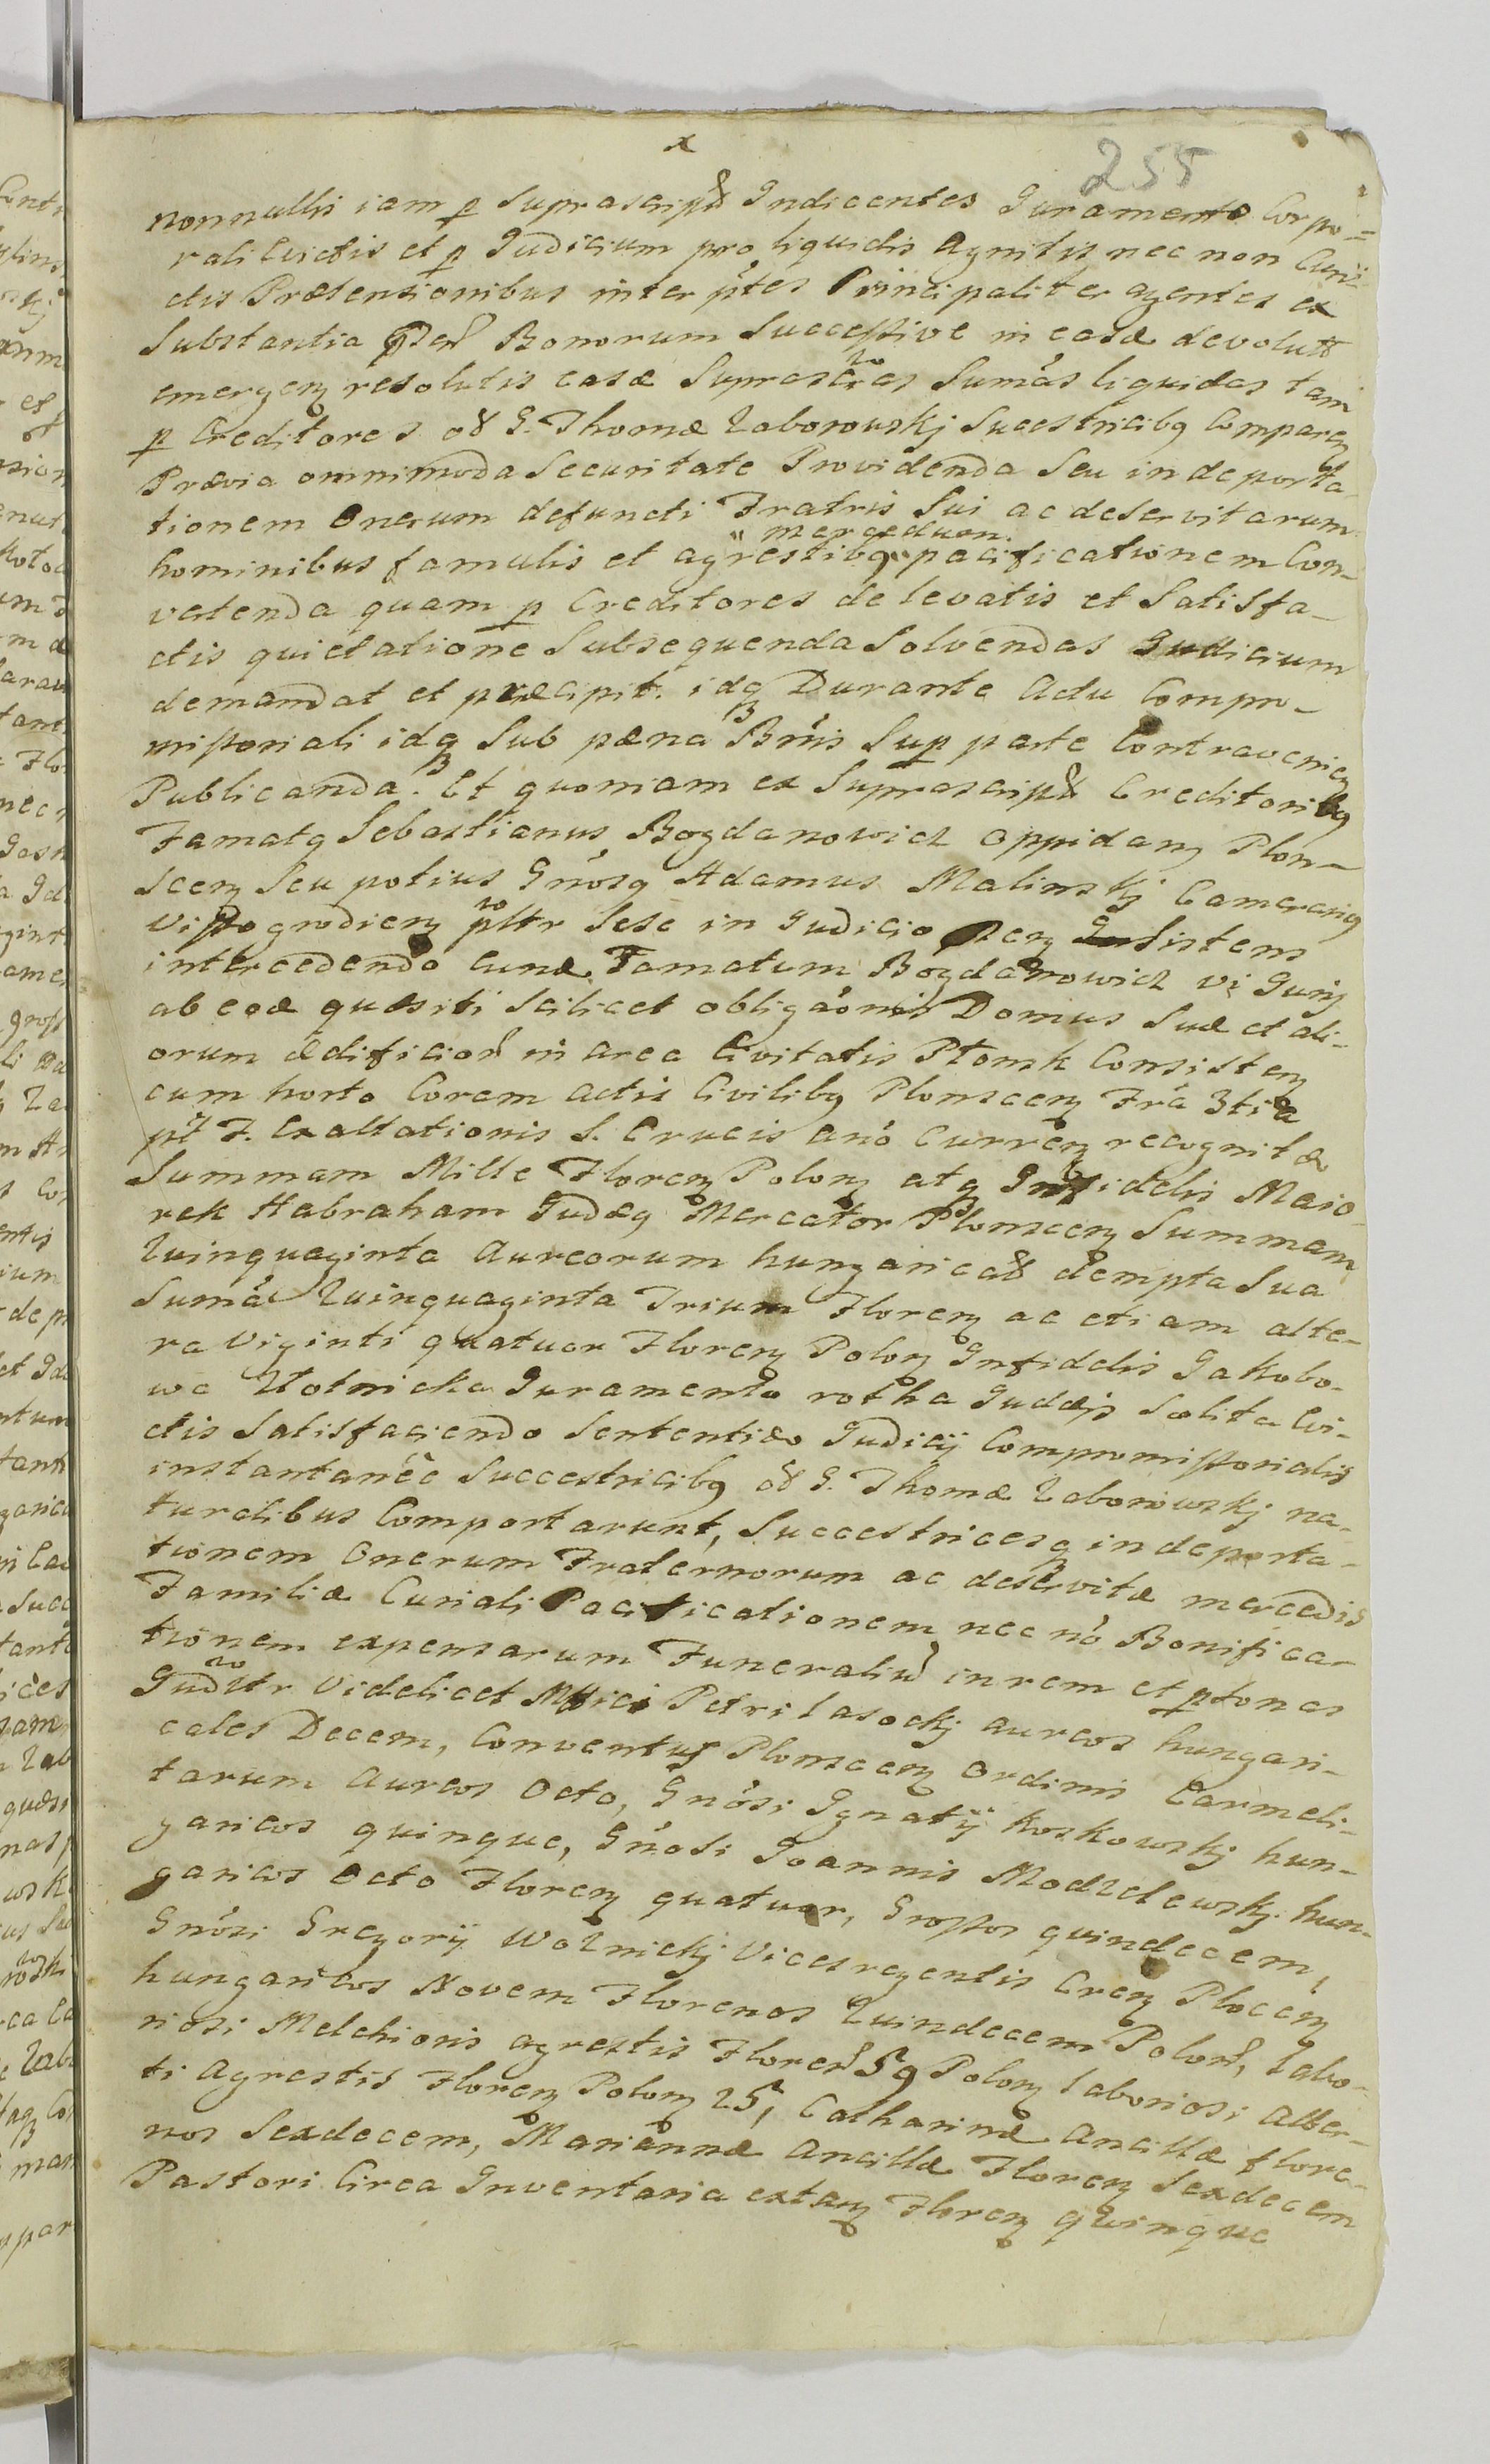 x
255
nonnullis iam p suprascriptt Indicentes Juramento Corpo=
rali Evictis et p Judicium pro liquidis Agnitis nec non Cun-
ctis Prætensionibus inter pñtes Principaliter agentes ex
Substantia Bonorum Successive in easdæ devolutt
emergen resolutis easdæ Suprascr̃as Sumãs liquidas tam
p Creditores S. Thomæ Zaborowskj Sucestricibq Comparen
Prævia omnimoda Securitate Providenda Seu in deporta-
tionem Onerum defuncti Fratris Sui ac deservitarum
mercedum
hominibus famulis et agrestibq pacificationem Con-
vertenda quam p Creditores de levatis et Satisfa-
ctis quietatione Subsequenda Solvendas Judicium
demandat et præcipit. idq Durante Actu Compro-
missoriali idq Sub pæna Bñis Sup parte Contravenien
Publicanda. Et quoniam ex Suprascriptt Creditoribq
Famatq Sebastianus Bogdanowicz Oppidanq Plon-
scen Seu potius Gñosq Adamus Malinskj Camerariq
Vissogrodien pltr Sese in Judicio Sistens
intercedendo Famatum Bogdanowicz vi Juris
ab quæsiti Scilicet obligãonis Domus Suæ et ali-
orum ædificior̃ in area Civitatis Plonsk Consisten
cum horto Coram Actis Civilibq Plonscen Fr̃a 3tia
pt F. Exaltationis S. Crucis Anõ Curren recognitæ
Summam Mille Floren Polon atq Infidelis Maio-
rek Habraham Judæq Mercator Plonscen Summam
Quinquaginta Aureorum hungarical dempta Sua
Sumã Quinquaginta Trium Floren ac etiam alte-
ra Viginti quatuor Floren Polon Infidelis Jakubo-
wa Złotnicka Juramento rotha Judæis Solita Evi-
ctis Satisfaciendo Sententiæ Judicij Compromissorialis
instantaneê Succestricibq S. Thomæ Zaborowskj na-
turalibus Comportarunt, Succestricesq in deporta-
tionem Onerum Fraternorum ac deservitæ mercedis
Familiæ Curiali Pacificationem nec nõ Bonifica-
tionem expensarum Funeraliu inrem et psonas
Judltr Videlicet Mffici Petri Lasockj aureos hungari-
cales Decem, Conventus Plonscen Ordinis Carmeli-
tarum Aureos Octo, Gñosi Ignatij Koskowskj hun-
garicos quinque, Gñosi Joannis Modzelewskj hun-
garicos Octo Floren quatuor, Grossos quindecem,
Gñosi Gregorij Woznickj Vicesregentis Cren Plocen
hungaricos Novem Florenos Quindecem Polon, Labo-
riosi Melchioris agrestis Floren 59 Polon laboriosi Alber-
ti Agrestis Floren Polon 25, Catharinæ Ancillæ flore-
nos Sexdecem, Mariannæ Ancillæ Floren Sexdecem
Pastori Circa Inventaria extan Floren quinque